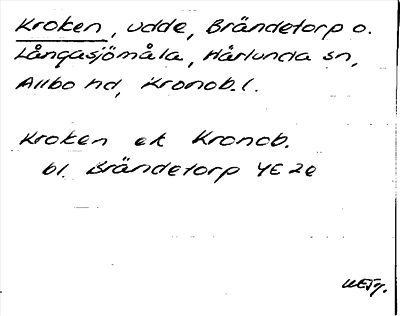 Kroken, udde, Brändetorp o.
Långasjömåla, Härlunda sn,
Allbo hd, Kronob. l.
Kroken ek Kronob.
bl. Brändetorp 4E 2e